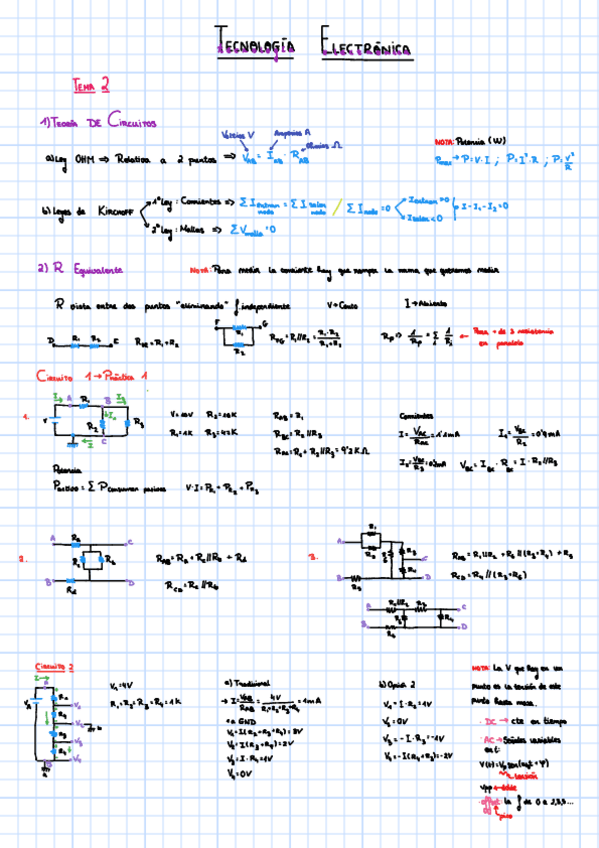 TECNOLOGÍA ELECTRÓNICA
TEMA 2
1) TEORÍA DE CIRCUITOS
Voltios V Amperios A
Ohmios Ω
a) Ley OHM ⇒ Relativa a 2 puntos ⇒ V_AB = I_AB · R_AB
NOTA: Potencia (W)
P → P = V · I ; P = I² · R ; P = V²/R
b) Leyes de KIRCHOFF
1ª Ley: Corrientes ⇒ Σ I entran nodo = Σ I salen nodo / Σ I nodo = 0
I entran > 0
I salen < 0
I - I₁ - I₂ = 0
2ª Ley: Mallas ⇒ Σ V malla = 0
2) R Equivalente
NOTA: Para medir la corriente hay que romper la rama que queremos medir
R vista entre dos puntos "eliminando" f. independiente
V → Corto
I → Abierto
D R₁ R₂ E
R_DE = R₁ + R₂
F G
R₁
R₂
R_FG = R₁//R₂ = R₁·R₂ / R₁+R₂
R_p ⇒ 1/R_p = Σ 1/R_i
← Para + de 2 resistencias
en paralelo
CIRCUITO 1 → Práctica 1
1.
A R₁ B
R₂ R₃
C
V = 10V
R₁ = 1K
R_AB = R₁
R_BC = R₂//R₃
R_AC = R₁ + R₂//R₃ = 9'2 KΩ
Corrientes
I = V_AC/R_AC = 1.1mA
I₁ = V_BC/R₂ = 0'9mA
I₂ = V_BC/R₃ = 0'2mA
V_BC = I_BC · R_BC = I · R₂//R₃
Potencia
P activo = Σ P consumen pasivos
V·I = P_R1 + P_R2 + P_R3
2.
A C
B D
R_CD = R_c//R_b
3.
A
C
B D
R_AB = R₁//R₂ + R₆//(R₃+R₄) + R₅
R_CD = R₄//(R₃+R₆)
A R₁//R₂ R₃ C
B D
CIRCUITO 2
V₁ = 4V
R₁ = R₂ = R₃ = R₄ = 1K
a) Tradicional
→ I = V_AB/R_AB = 4V / R₁+R₂+R₃+R₄ = 1mA
GND
V₁ = I(R₂+R₃+R₄) = 3V
V₂ = I(R₃+R₄) = 2V
V₃ = I · R₄ = 1V
V₄ = 0V
b) Opción 2
V₁ = I · R₂ = 1V
V₂ = 0V
V₃ = -I · R₃ = -1V
V₄ = -I(R₄+R₃) = -2V
NOTA: La V que hay en un
punto es la tensión de este
punto hasta masa.
· DC → cte en tiempo
· AC → Señales variables
en t: